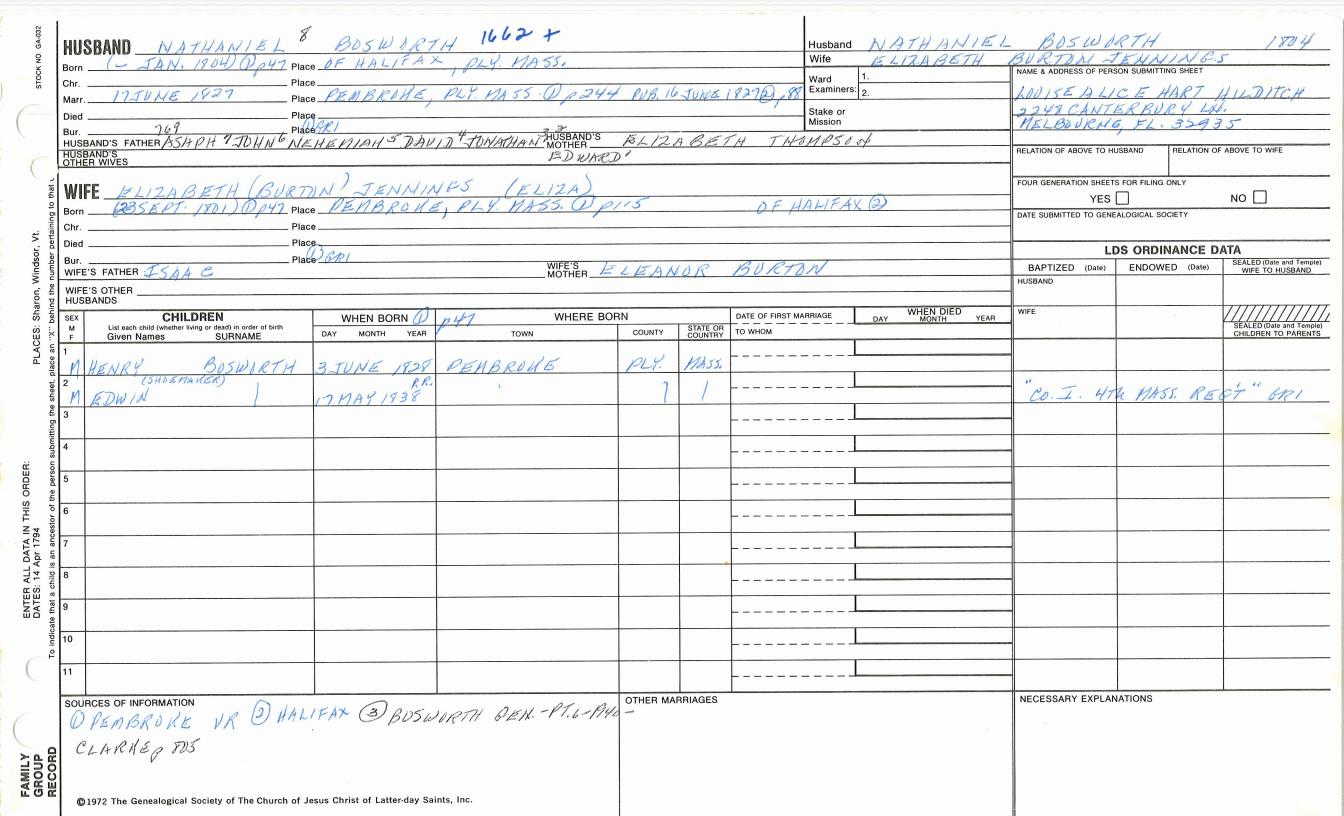 STOCK NO GA-032
HUSBAND NATHANIEL 8 BOSWORTH 1662 +
Born (- JAN. 1804) ① p47 Place OF HALIFAX, PLY. MASS.
Chr. Place
Marr. 17 JUNE 1827 Place PEMBROKE, PLY MASS. ① p244 PUB. 16 JUNE 1827 ② p.88
Died Place
Bur. 769 Place ① GRI
HUSBAND'S FATHER ASAPH 7 JOHN 6 NEHEMIAH 5 DAVID 4 JONATHAN 3-2 HUSBAND'S MOTHER ELIZABETH THOMPSON
EDWARD 1
HUSBAND'S OTHER WIVES
Husband NATHANIEL BOSWORTH 1804
Wife ELIZABETH BURTON JENNINGS
Ward Examiners: 1.
2.
Stake or Mission
NAME & ADDRESS OF PERSON SUBMITTING SHEET
LOUISE ALICE HART HILDITCH
2248 CANTERBURY LN.
MELBOURNE, FL. 32935
RELATION OF ABOVE TO HUSBAND RELATION OF ABOVE TO WIFE
FOUR GENERATION SHEETS FOR FILING ONLY
YES NO
DATE SUBMITTED TO GENEALOGICAL SOCIETY
WIFE ELIZABETH (BURTON) JENNINGS (ELIZA)
Born (23 SEPT. 1801) ① p47 Place PEMBROKE, PLY. MASS. ① p115 OF HALIFAX ②
Chr. Place
Died Place
Bur. Place ① GRI
WIFE'S FATHER ISAAC WIFE'S MOTHER ELEANOR BURTON
WIFE'S OTHER HUSBANDS
LDS ORDINANCE DATA
BAPTIZED (Date) ENDOWED (Date) SEALED (Date and Temple) WIFE TO HUSBAND
HUSBAND
WIFE
SEALED (Date and Temple) CHILDREN TO PARENTS
SEX M F
CHILDREN
List each child (whether living or dead) in order of birth
Given Names SURNAME
WHEN BORN ① p47
DAY MONTH YEAR
WHERE BORN
TOWN COUNTY STATE OR COUNTRY
DATE OF FIRST MARRIAGE
TO WHOM
WHEN DIED
DAY MONTH YEAR
1
M HENRY BOSWORTH 3 JUNE 1828 PEMBROKE PLY. MASS.
2 (SHOEMAKER) P.R.
M EDWIN 17 MAY 1838 "CO. I. 4th MASS. REG't" GRI
3
4
5
6
7
8
9
10
11
SOURCES OF INFORMATION
① PEMBROKE VR ② HALIFAX ③ BOSWORTH GEN.-PT.6-
CLARKE p 805
OTHER MARRIAGES
NECESSARY EXPLANATIONS
©1972 The Genealogical Society of The Church of Jesus Christ of Latter-day Saints, Inc.
FAMILY GROUP RECORD
ENTER ALL DATA IN THIS ORDER:
DATES: 14 Apr 1794
PLACES: Sharon, Windsor, Vt.
To indicate that a child is an ancestor of the person submitting the sheet, place an "X" behind the number pertaining to that